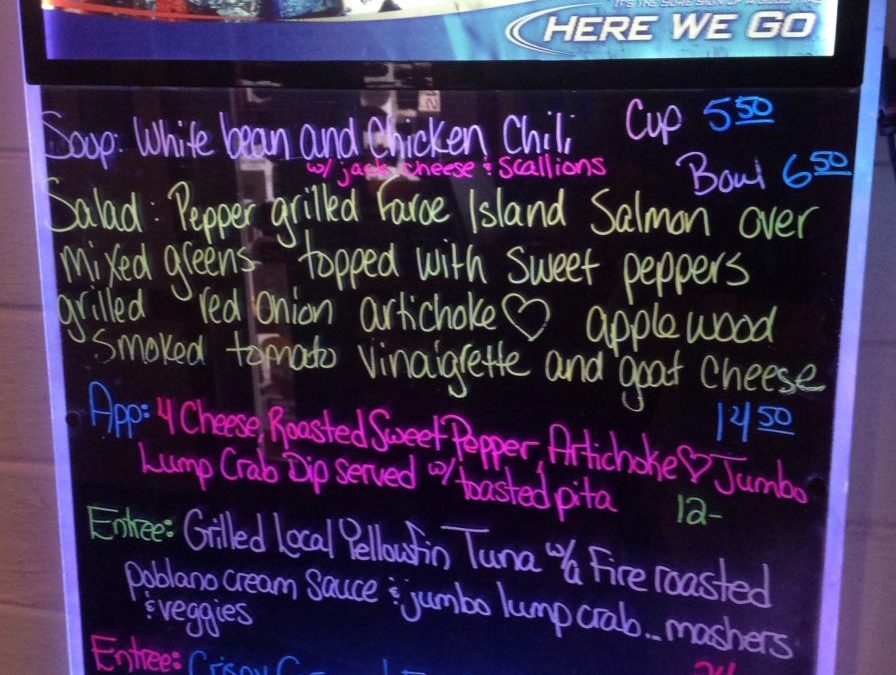 HERE WE GO
Soup: White bean and Chicken Chili Cup 5 50
w/ jack cheese & Scallions Bowl 6 50
Salad: Pepper grilled Faroe Island Salmon over
Mixed greens topped with sweet peppers
grilled red onion artichoke♡ applewood
Smoked tomato vinaigrette and goat cheese
14 50
App: 4 Cheese, Roasted Sweet Pepper, Artichoke♡ Jumbo
Lump Crab Dip served w/ toasted pita 12-
Entree: Grilled Local Yellowfin Tuna w/a Fire roasted
poblano cream sauce & jumbo lump crab... mashers
& veggies
Entree: Crispy